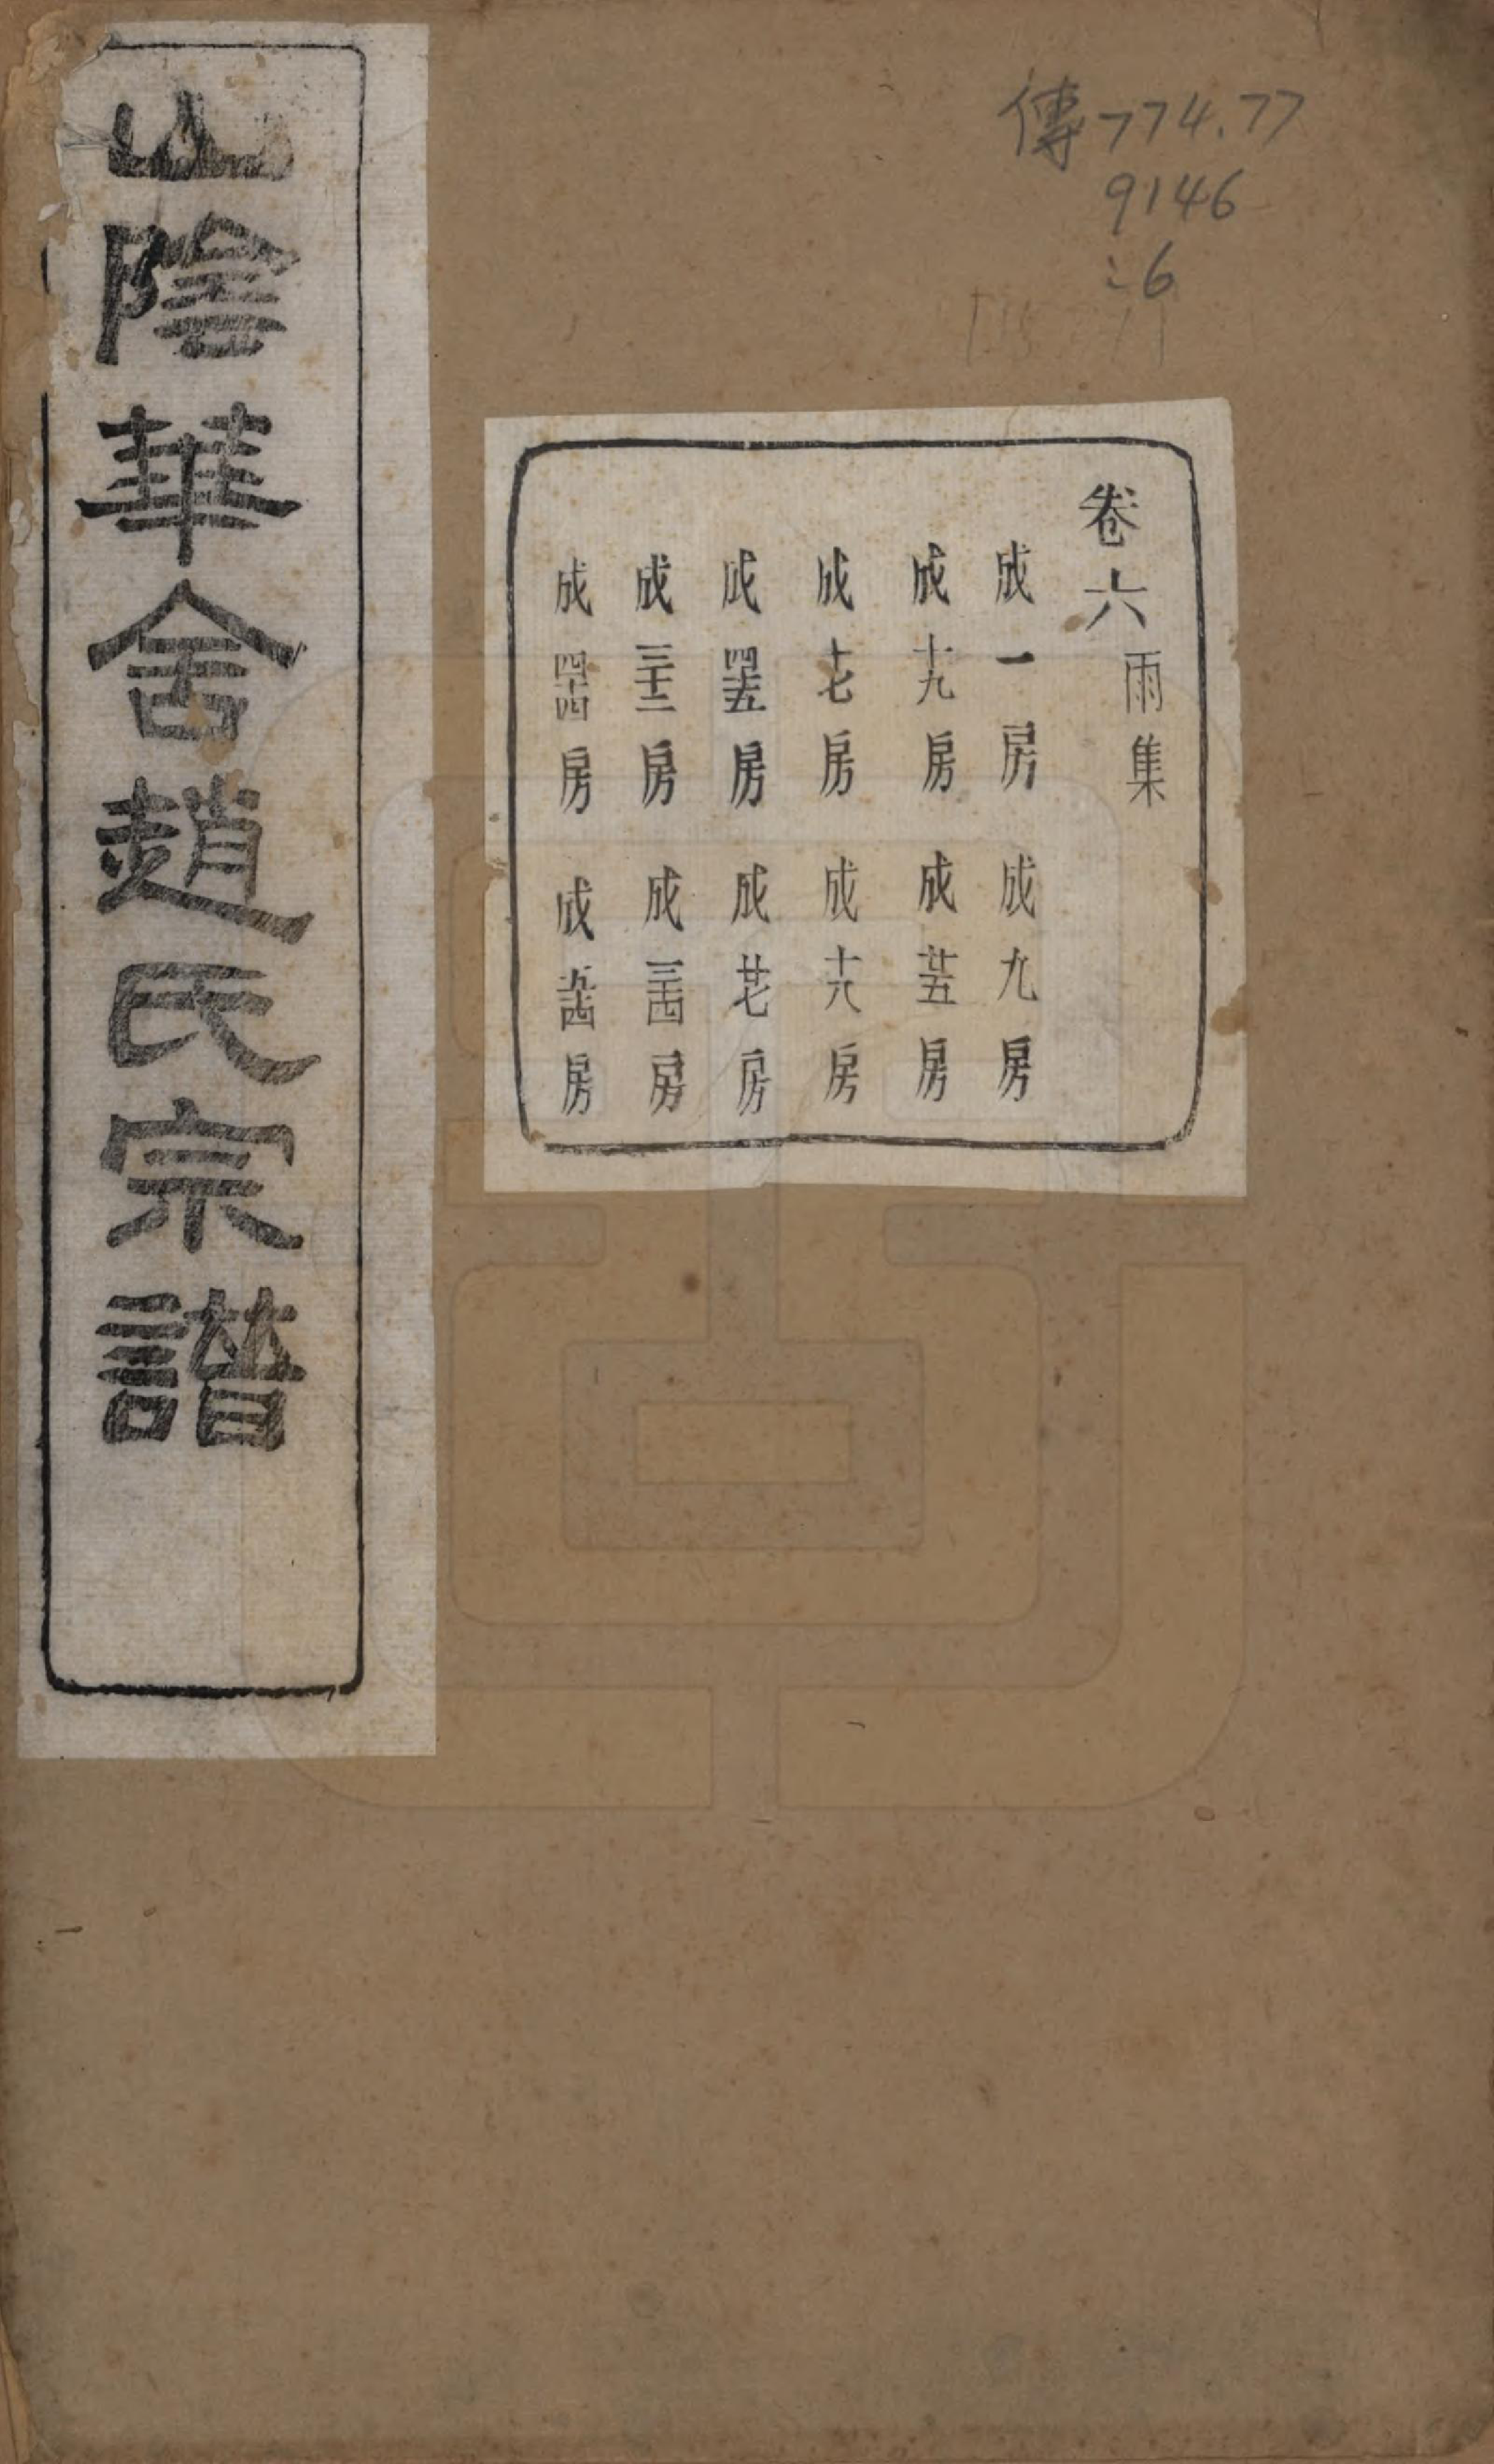 傳774.77
9146
:6
卷六
雨集
成一房 成九房
成十九房 成廿五房
成十七房 成十八房
成四十五房 成廿七房
成三十二房 成三十四房
成四十四房 成五十四房
山陰華舍趙氏宗譜